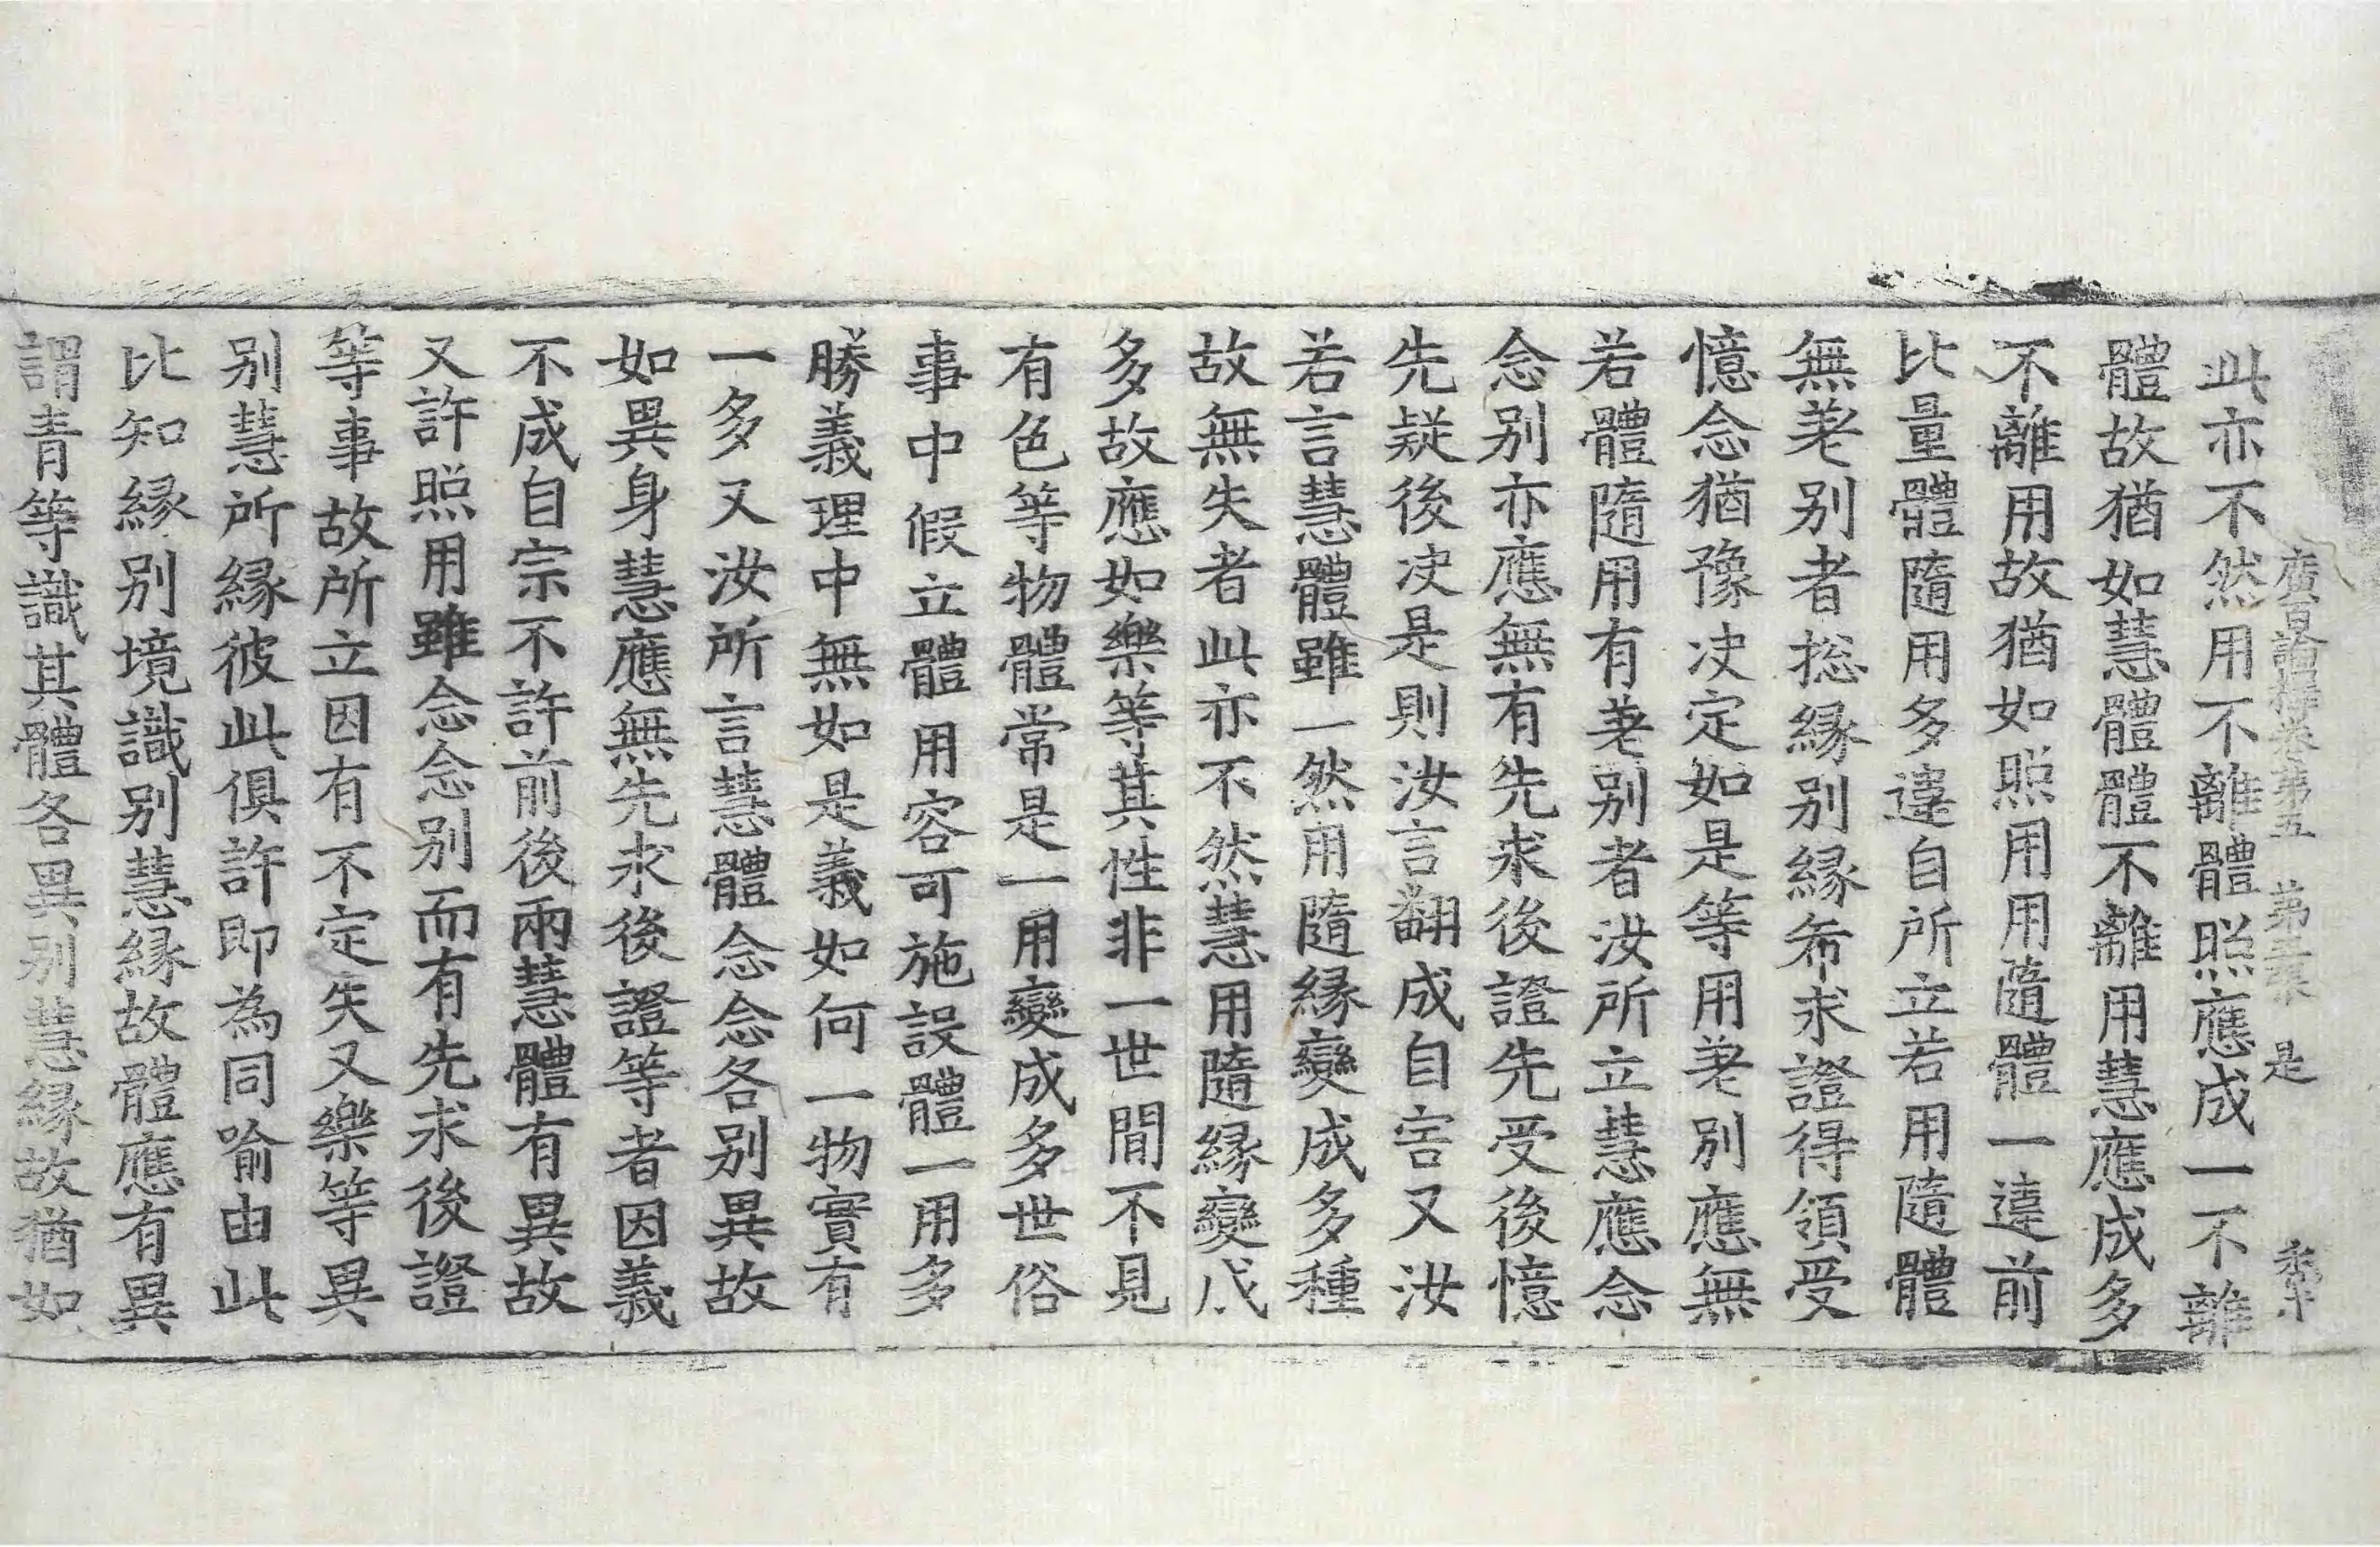 廣百論釋卷第五　第三張　是
此亦不然用不離體照應成一不離
體故猶如慧體體不離用慧應成多
不離用故猶如照用用隨體一違前
比量體隨用多違自所立若用隨體
無差别者捴縁别縁希求證得領受
憶念猶豫决定如是等用差别應無
若體隨用有差别者汝所立慧應念
念别亦應無有先求後證先受後憶
先疑後决是則汝言翻成自害又汝
若言慧體雖一然用隨縁變成多種
故無失者此亦不然慧用隨縁變成
多故應如樂等其性非一世間不見
有色等物體常是一用變成多世俗
事中假立體用容可施設體一用多
勝義理中無如是義如何一物實有
一多又汝所言慧體念念各别異故
如異身慧應無先求後證等者因義
不成自宗不許前後兩慧體有異故
又許照用雖念念别而有先求後證
等事故所立因有不定失又樂等異
别慧所縁彼此俱許即為同喻由此
比知縁别境識别慧縁故體應有異
謂青等識其體各異别慧縁故猶如